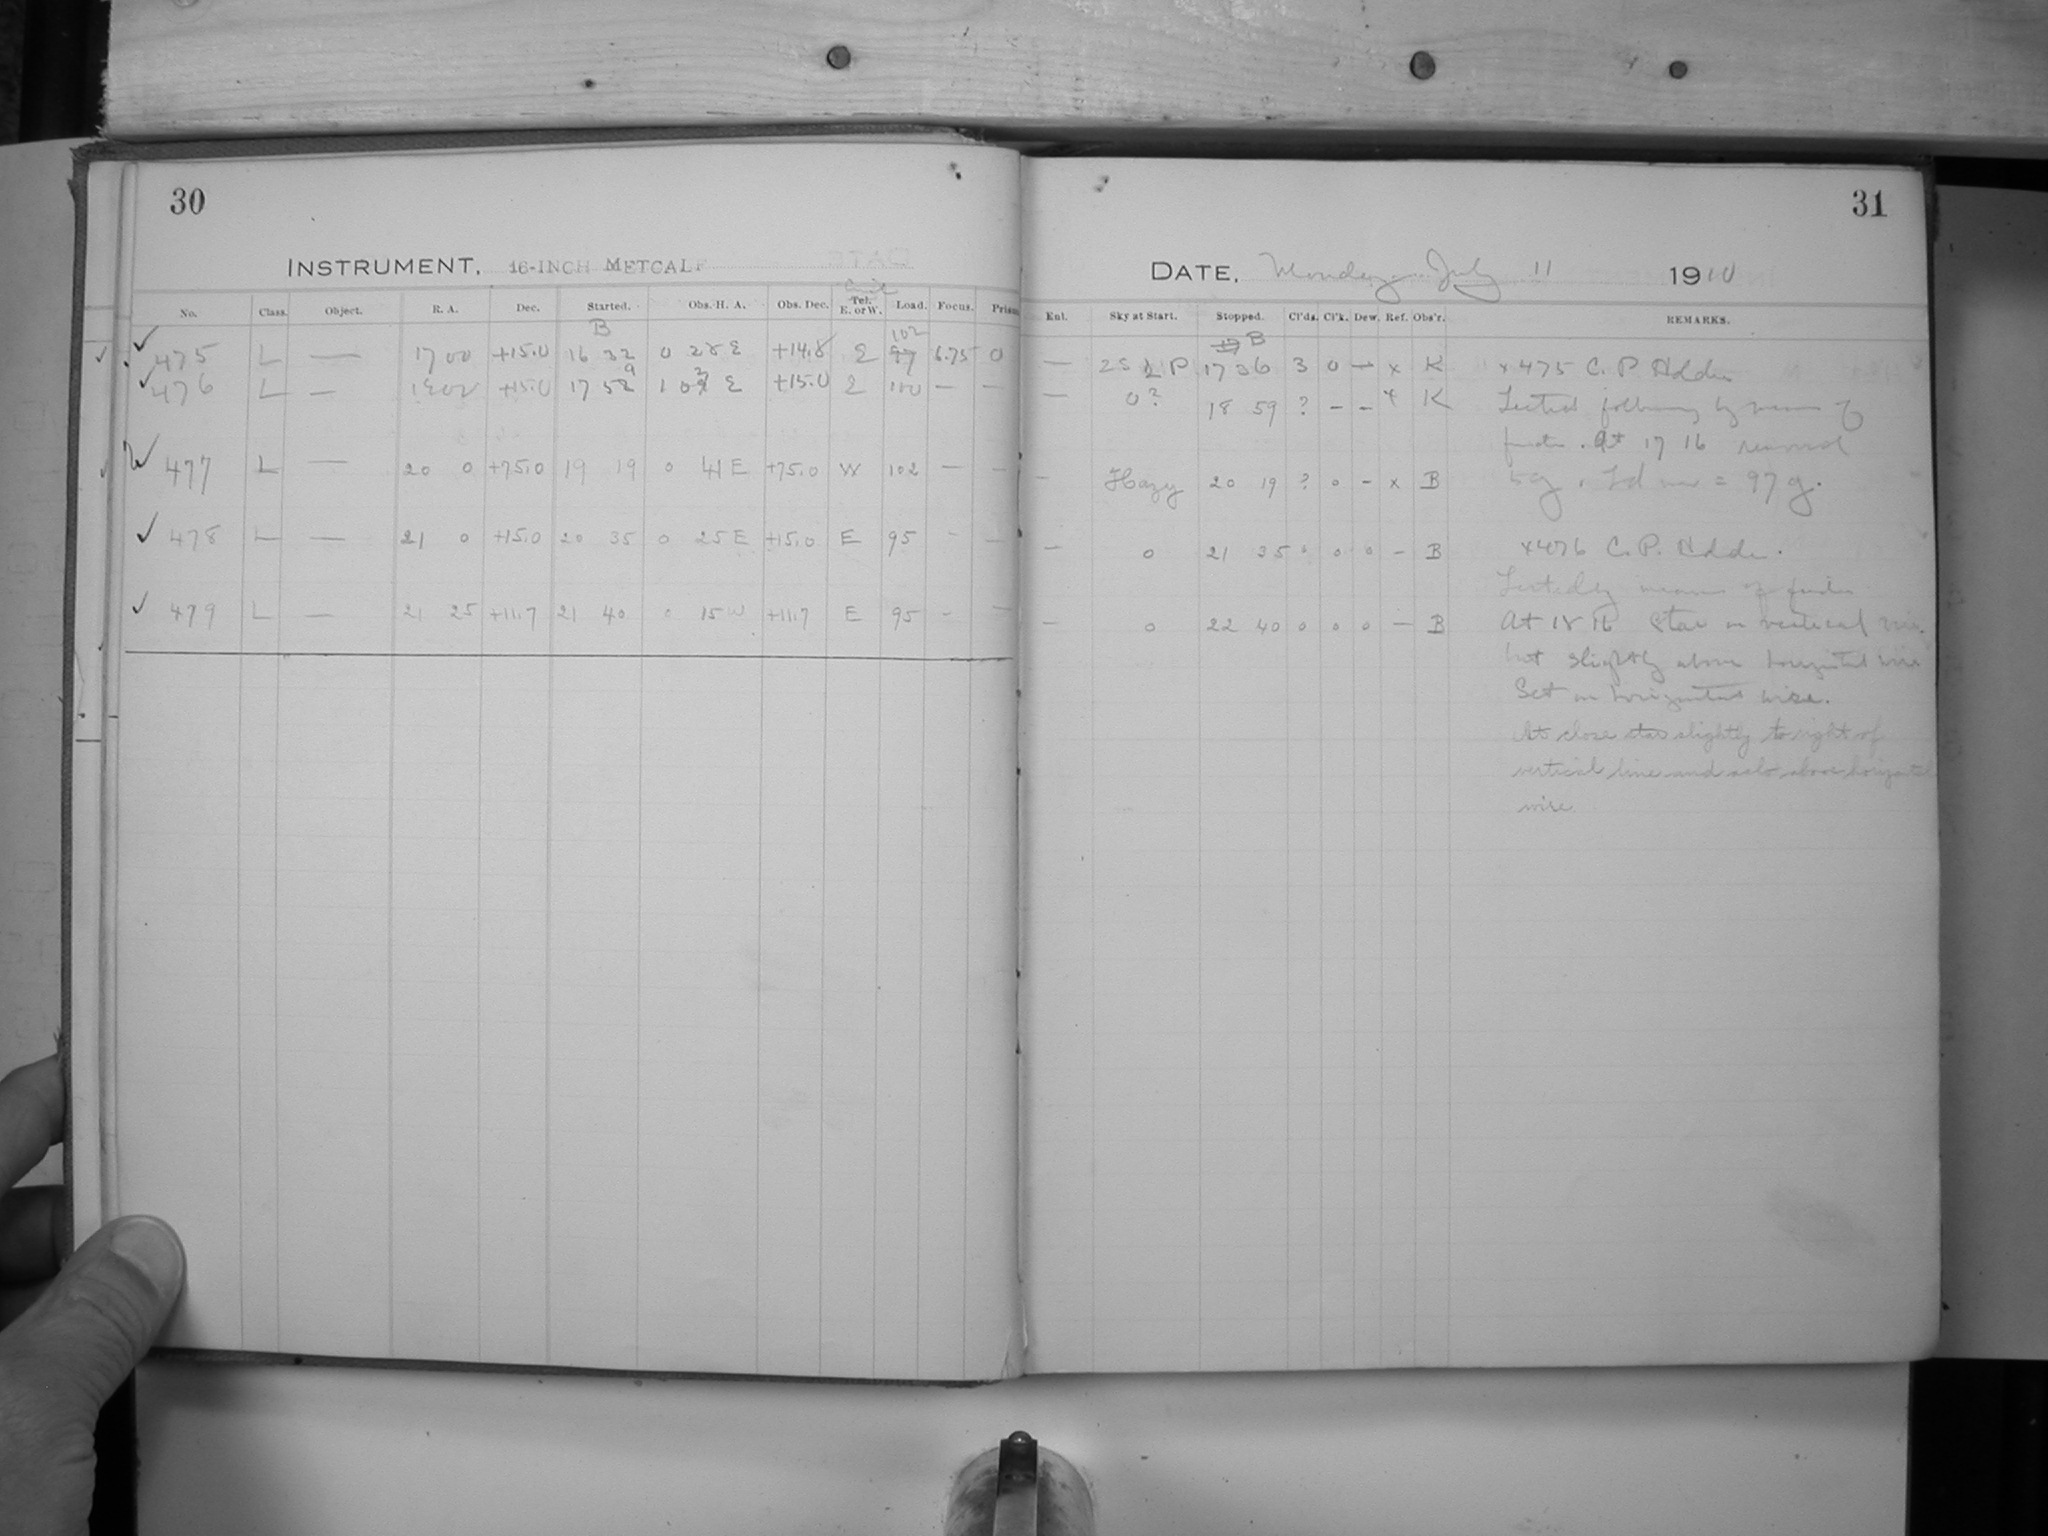 30
INSTRUMENT, 16-INCH METCALF
No. Class. Object. R. A. Dec. Started. Obs. H. A. Obs. Dec. Tel. E. or W. Load. Focus. Prism
B 102
475 L — 17 00 +15.0 16 32 0 28 E +14.8 E 97 6.75 0
476 L — 18 02 +15.0 17 59 1 03 E +15.0 E 100 — —
477 L — 20 0 +75.0 19 19 0 41 E +75.0 W 102 — —
478 L — 21 0 +15.0 20 35 0 25 E +15.0 E 95 - —
479 L — 21 25 +11.7 21 40 0 15 W +11.7 E 95 - —
31
DATE, Monday July 11 1910
Enl. Sky at Start. Stopped. Cl'ds. Cl'k. Dew. Ref. Obs'r. REMARKS.
B
— 17 36 3 0 — x K x 475 C. P. Holder
— 0? 18 59 ? - - x K following by means of
At 17 16 removed
- Hazy 20 19 ? 0 - x B 5 g. = 97 g.
— 0 21 35 0 0 0 - B x476 C. P. Holder.
by means of finder
— 0 22 40 0 0 0 — B At 18 16 Star on vertical wire
but slightly above horizontal wire
Set on horizontal wire.
At close star slightly to right of
vertical line and also above horizontal
wire